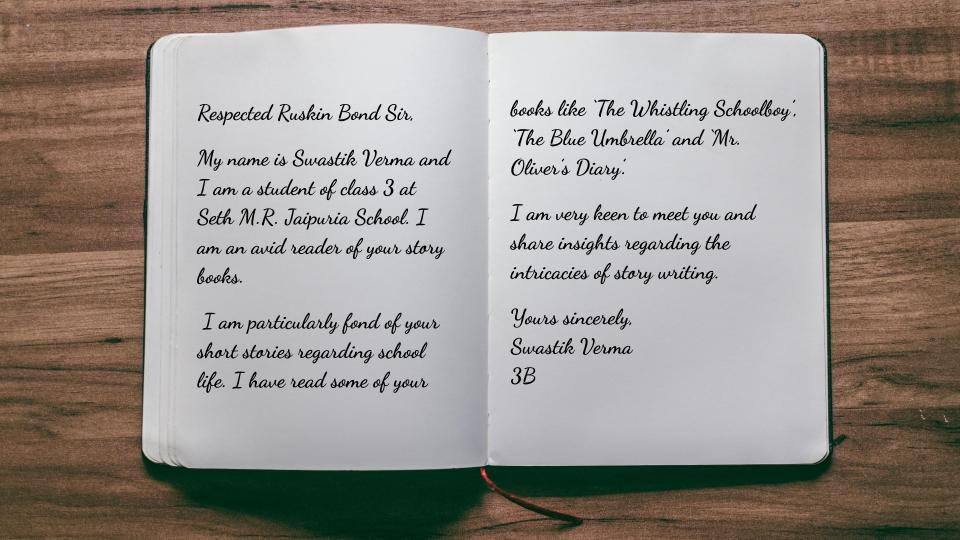 Respected Ruskin Bond Sir,
My name is Swastik Verma and
I am a student of class 3 at
Seth M.R. Jaipuria School. I
am an avid reader of your story
books.
I am particularly fond of your
short stories regarding school
life. I have read some of your
books like 'The Whistling Schoolboy',
'The Blue Umbrella' and 'Mr.
Oliver's Diary'.
I am very keen to meet you and
share insights regarding the
intricacies of story writing.
Yours sincerely,
Swastik Verma
3B